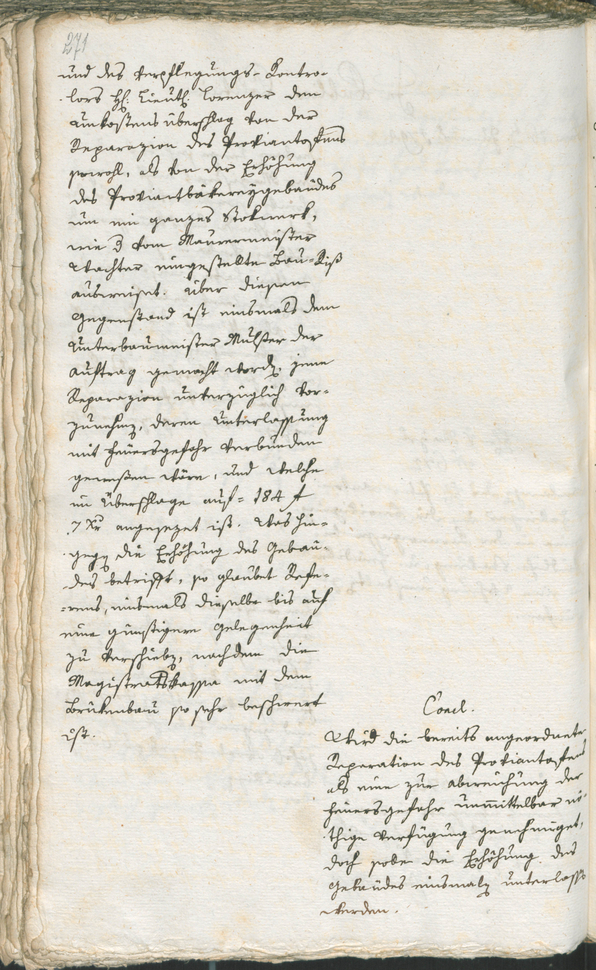 271
und des Verpflegungs-Kontro-
lors H. Lieut. Lorenzer den
Unkostens überschlag von der
Reparazion des Proviantofens
sowohl, als von der Erhöhung
des Proviantbäkereygebäudes
um ein ganzes Stokwerk,
wie 3 vom Maurermeister
Wachter eingestellte Bau-Riß
ausweiset. Über diesen
Gegenstand ist einsmals dem
Unterbaumeister Mulser der
Auftrag gemacht word, jene
Reparazion unverzüglich vor-
zunehm, deren Unterlassung
mit Feuersgefahr verbunden
gewesen wäre, und welche
im Überschlage auf = 184 f
7 Xr angesezet ist. Was hin-
geg die Erhöhung des Gebäu-
des betrifft, so glaubet Refe-
rens, einsmals dieselbe bis auf
eine günstigere Gelegenheit
zu verschieb, nachdem die
Magistratskassa mit dem
Brükenbau so sehr beschwert
ist.
Concl.
Wird die bereits angeordnete
Reparation des Proviantofens
als eine zur abweichung der
Feuersgefahr unmittelbar nö-
thige Verfügung genehmiget,
doch solle die Erhöhung des
Gebäudes einsmals unterlass
werden.